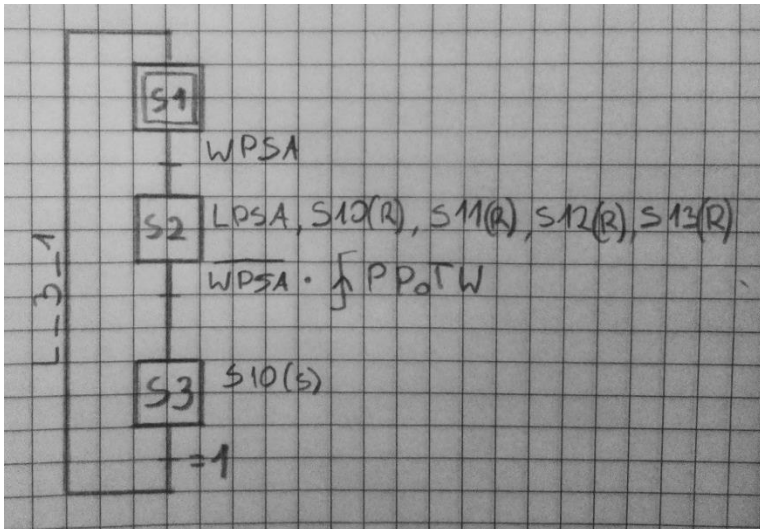 S1
WPSA
S2 LPSA, S10(R), S11(R), S12(R), S13(R)
W̅P̅S̅A̅ · ∫↑ PPoTW
S3 S10(S)
=1
L_3_1